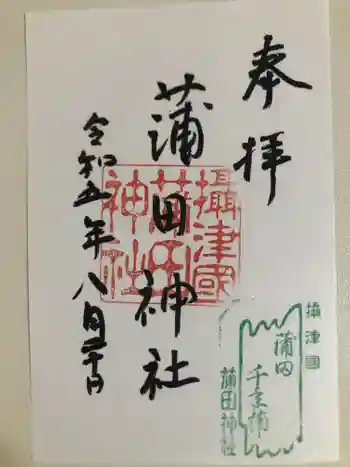 奉拝
蒲田神社
令和五年八月三十日
攝津國
蒲田
神社
攝津國
蒲田
蒲田神社